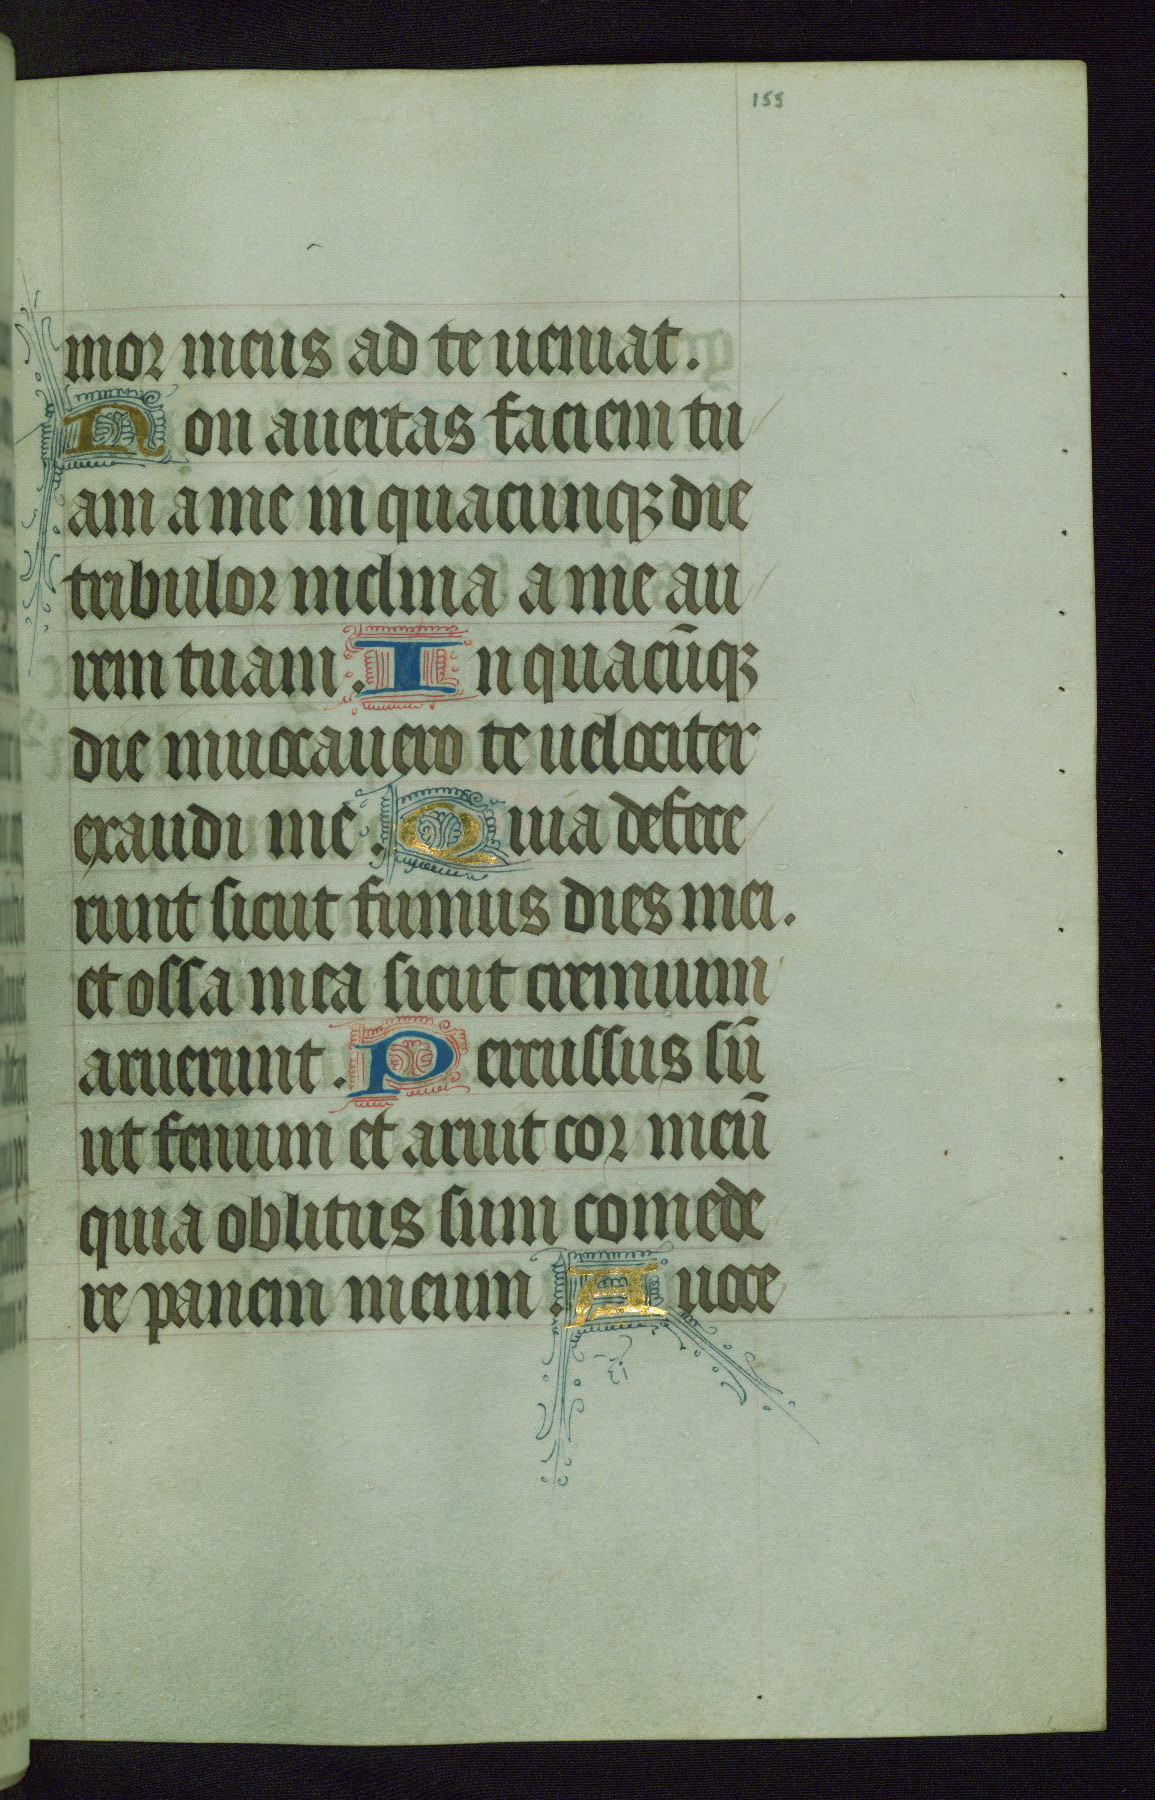 155
mor meus ad te ueniat.
Non auertas faciem tu
am a me in quacunqꝫ die
tribulor inclina a me au
rem tuam. In quacūqꝫ
die inuocauero te uelociter
exaudi me. Quia defece
runt sicut fumus dies mei.
et ossa mea sicut cremium
aruerunt. Percussus sū
ut fenum et aruit cor meū
quia oblitus sum comede
re panem meum. A uoce